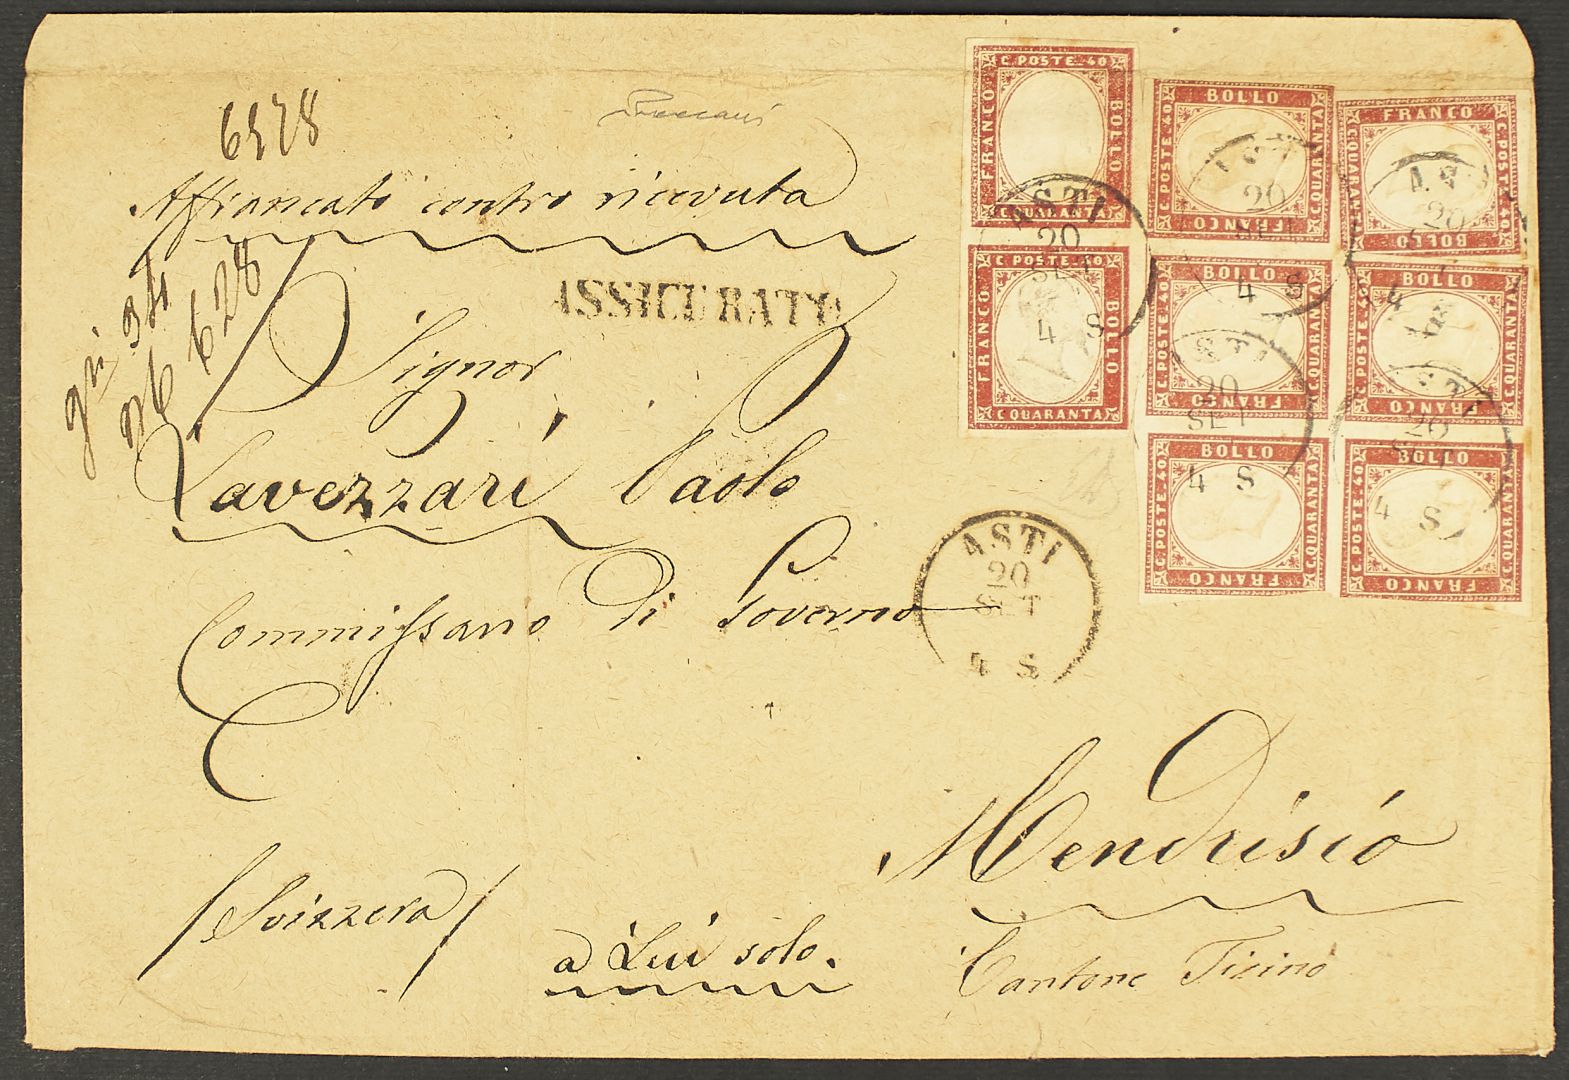 Affrancato contro ricevuta
ASSICURATO
Signor
Lavezzari Paolo
Commissario di Governo
Mendrisio
/Svizzera/
a Lui solo.
Cantone Ticino
gri 34
628
C. POSTE. 40
FRANCO
BOLLO
C. QUARANTA
C. POSTE. 40
FRANCO
BOLLO
C. QUARANTA
BOLLO
C. POSTE. 40
C. QUARANTA
FRANCO
BOLLO
C. POSTE. 40
C. QUARANTA
FRANCO
BOLLO
C. POSTE. 40
C. QUARANTA
FRANCO
FRANCO
C. QUARANTA
C. POSTE. 40
BOLLO
BOLLO
C. POSTE. 40
C. QUARANTA
FRANCO
BOLLO
C. POSTE. 40
C. QUARANTA
FRANCO
ASTI
20
SET
4 S
ASTI
20
SET
4 S
ASTI
20
SET
4 S
ASTI
20
SET
4 S
ASTI
20
SET
4 S
ASTI
20
SET
4 S